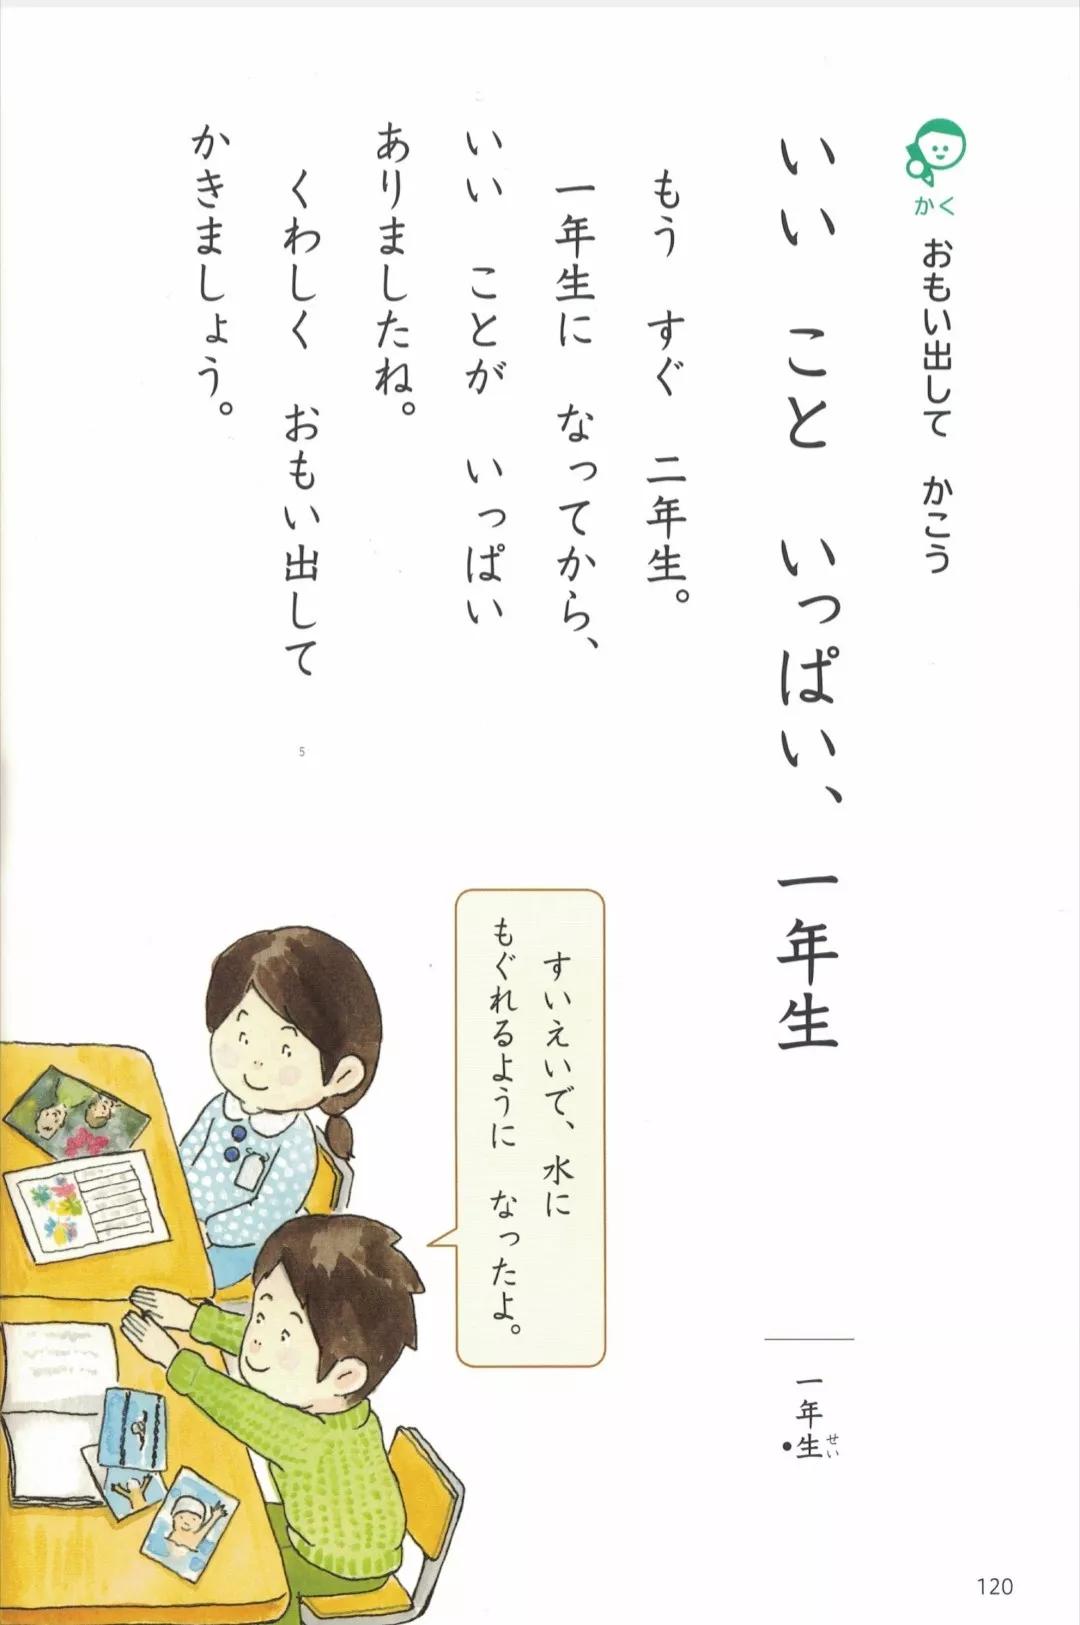 かく
おもい出して かこう
いい こと いっぱい、一年生
もう すぐ 二年生。
一年生に なってから、
いい ことが いっぱい
ありましたね。
くわしく おもい出して
かきましょう。
5
すいえいで、水に
もぐれるように なったよ。
一年生
せい
120